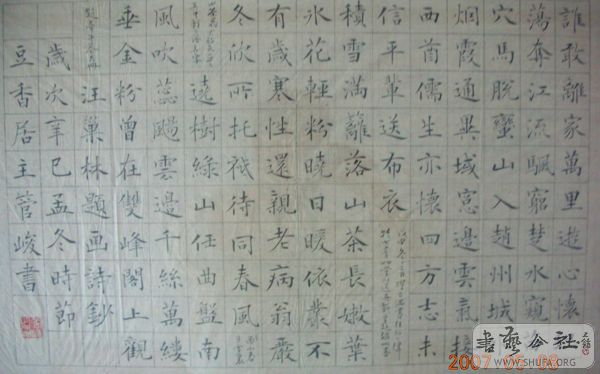 誰敢離家萬里遊心懷
蕩奔江流颿窮楚水窺
穴馬脫蠻山入趙州城
烟霞通異域窓邊雲氣接
西酋儒生亦懷四方志未
信平輩送布衣
積雪滿籬落山茶長嫩葉
氷花輕粉曉日暖依叢不
有歲寒性還親老病翁嚴
冬欣所托衹待同春風
遠樹綠山任曲盤南
風吹蕊颺雲邊千絲萬縷
垂金粉曾在雙峰閣上觀
汪巢林題画詩鈔
歲次辛巳孟冬時節
豆香居主管峻書
書藝公社
WWW.SHUFA.ORG